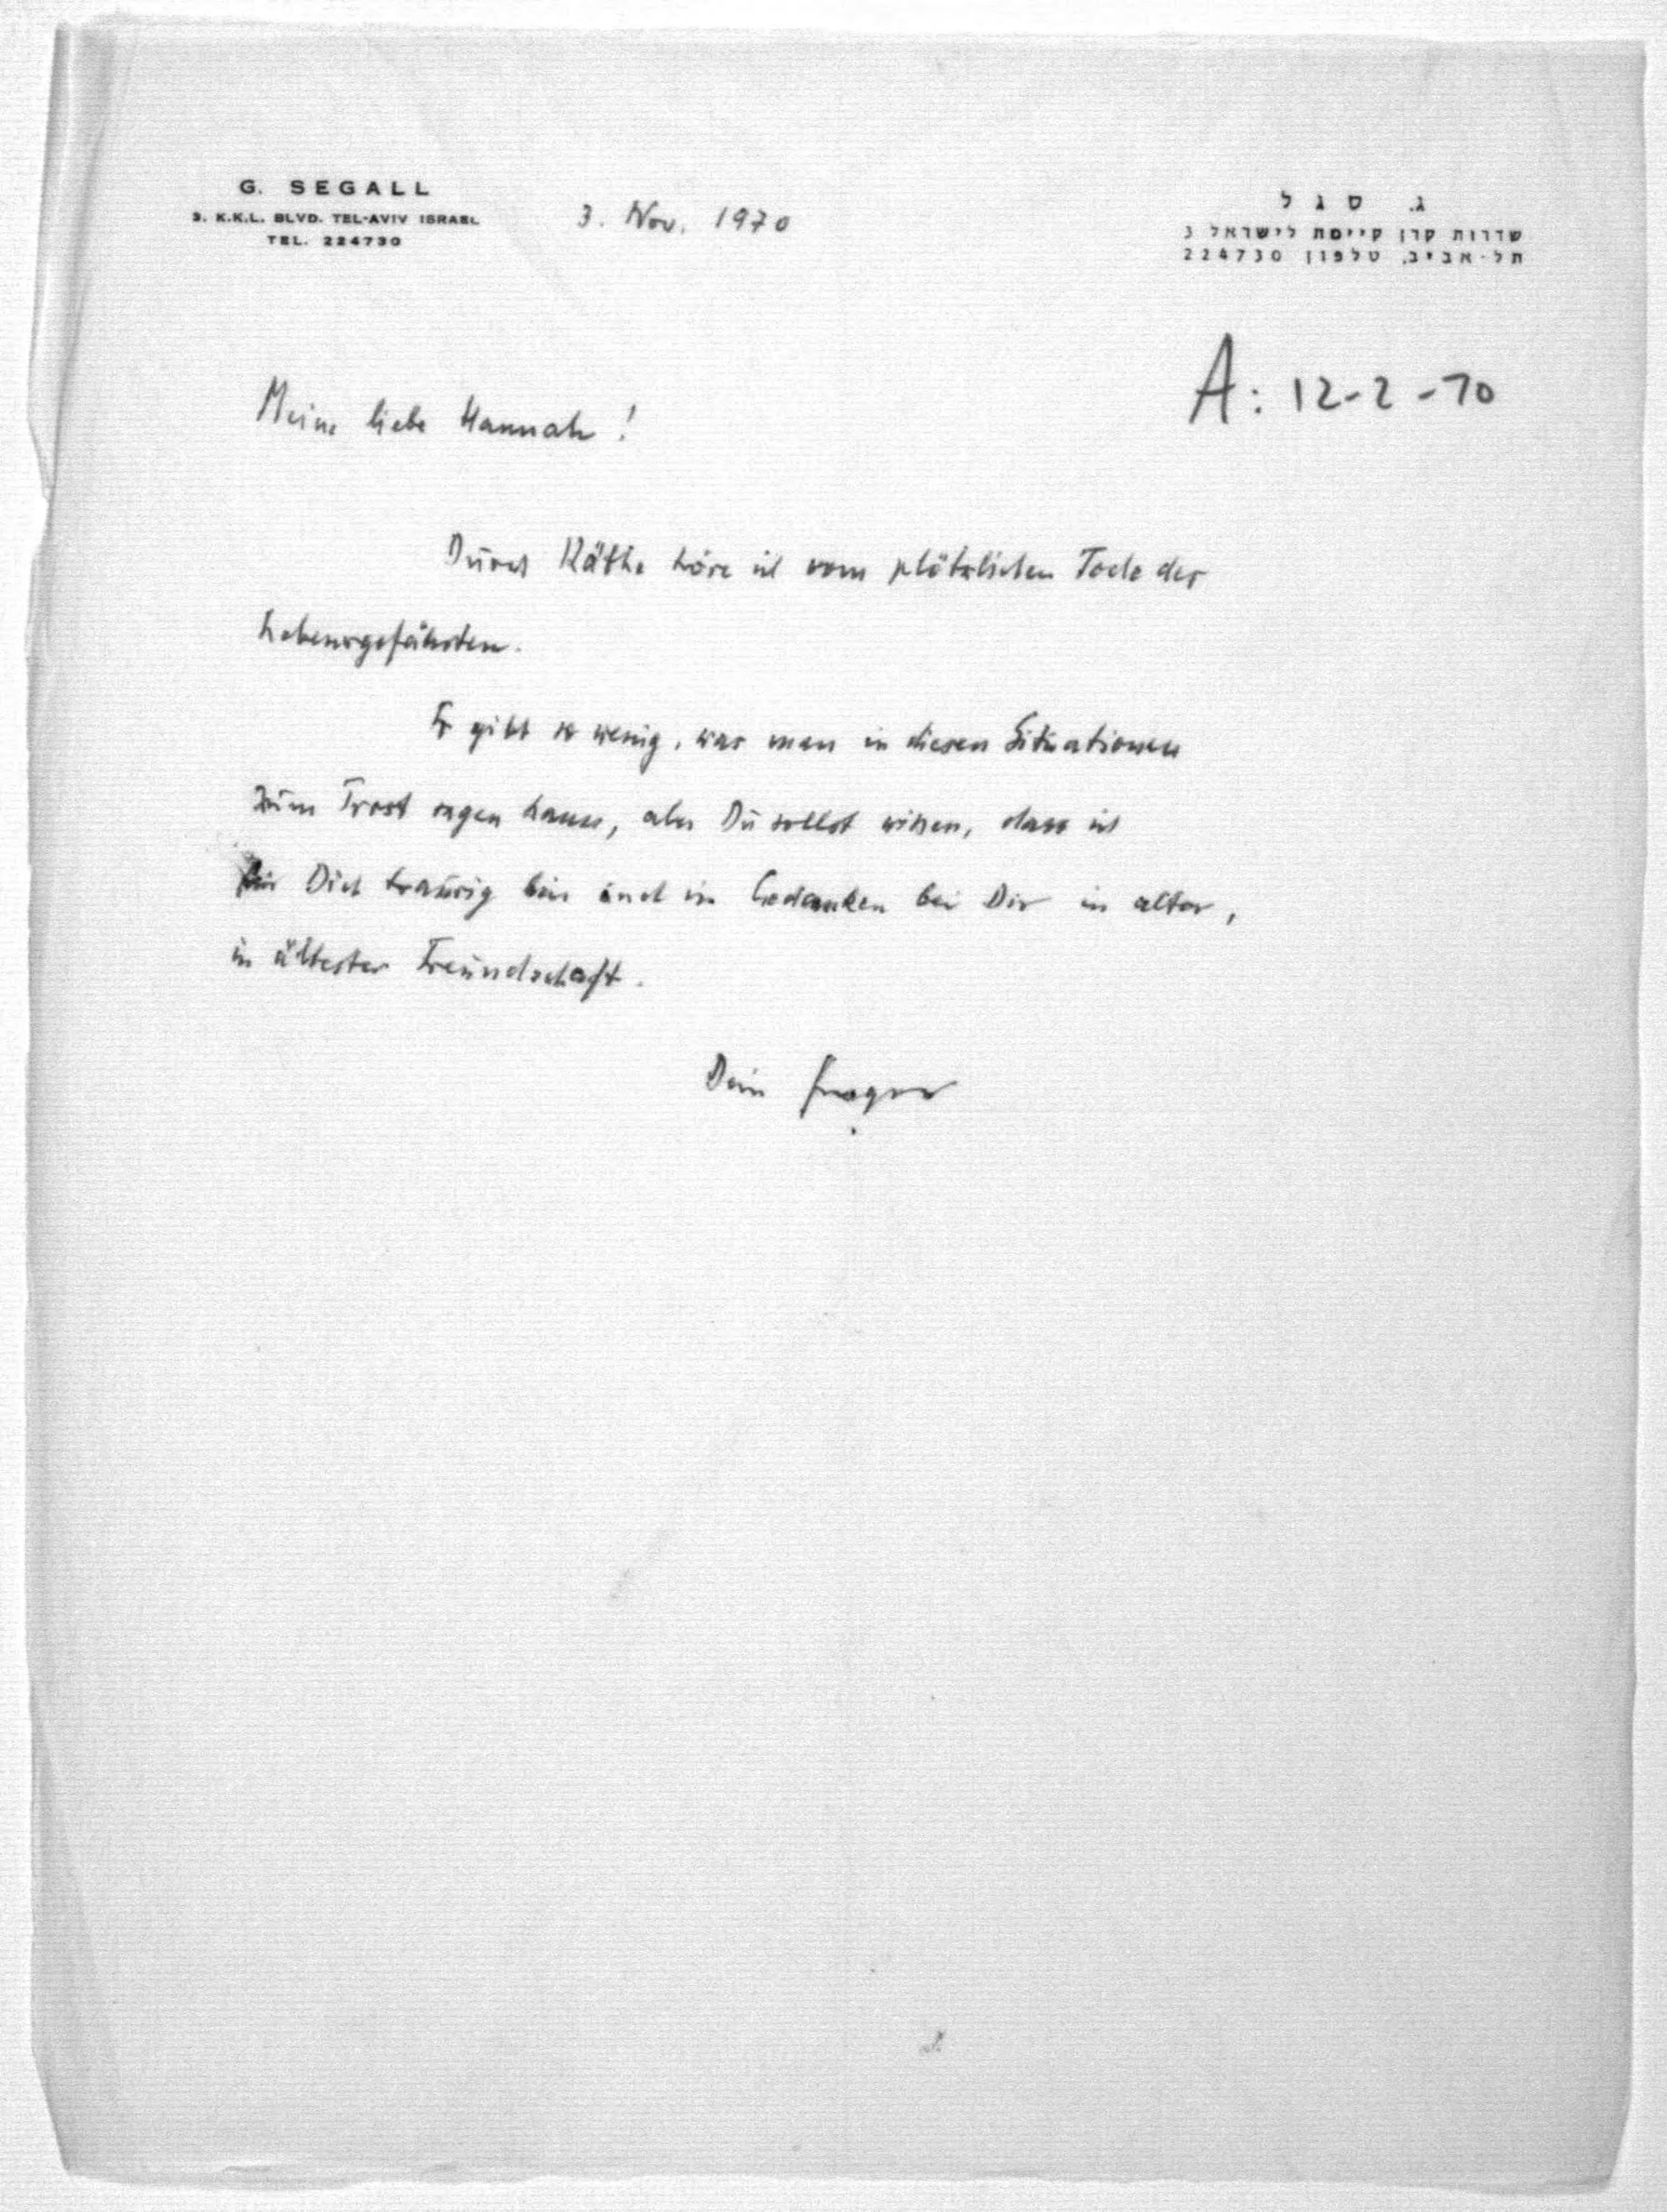 G. SEGALL
3. K.K.L. BLVD. TEL-AVIV ISRAEL
TEL. 224730
3. Nov. 1970
ג. סגל
שדרות קרן קיימת לישראל 3
תל-אביב, טלפון 224730
A: 12-2-70
Meine liebe Hannah!
Durch Käthe höre ich vom plötzlichen Tode des
Lebensgefährten.
Es gibt so wenig, was man in diesen Situationen
zum Trost sagen kann, aber Du sollst wissen, dass ich
für Dich traurig bin und in Gedanken bei Dir in alter,
in ältester Freundschaft.
Dein